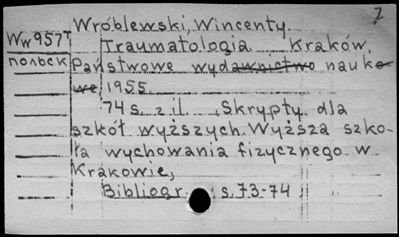 7
Wróblewski, Wincenty.
Ww957T Traumatologia Kraków,
польск Państwowe wydawnictwo nauko
we, 1955
74 s. z il. , Skrypty dla
szkół wyższych. Wyższa szko-
ła wychowania fizycznego w
Krakowie,
Bibliogr. s. 73-74